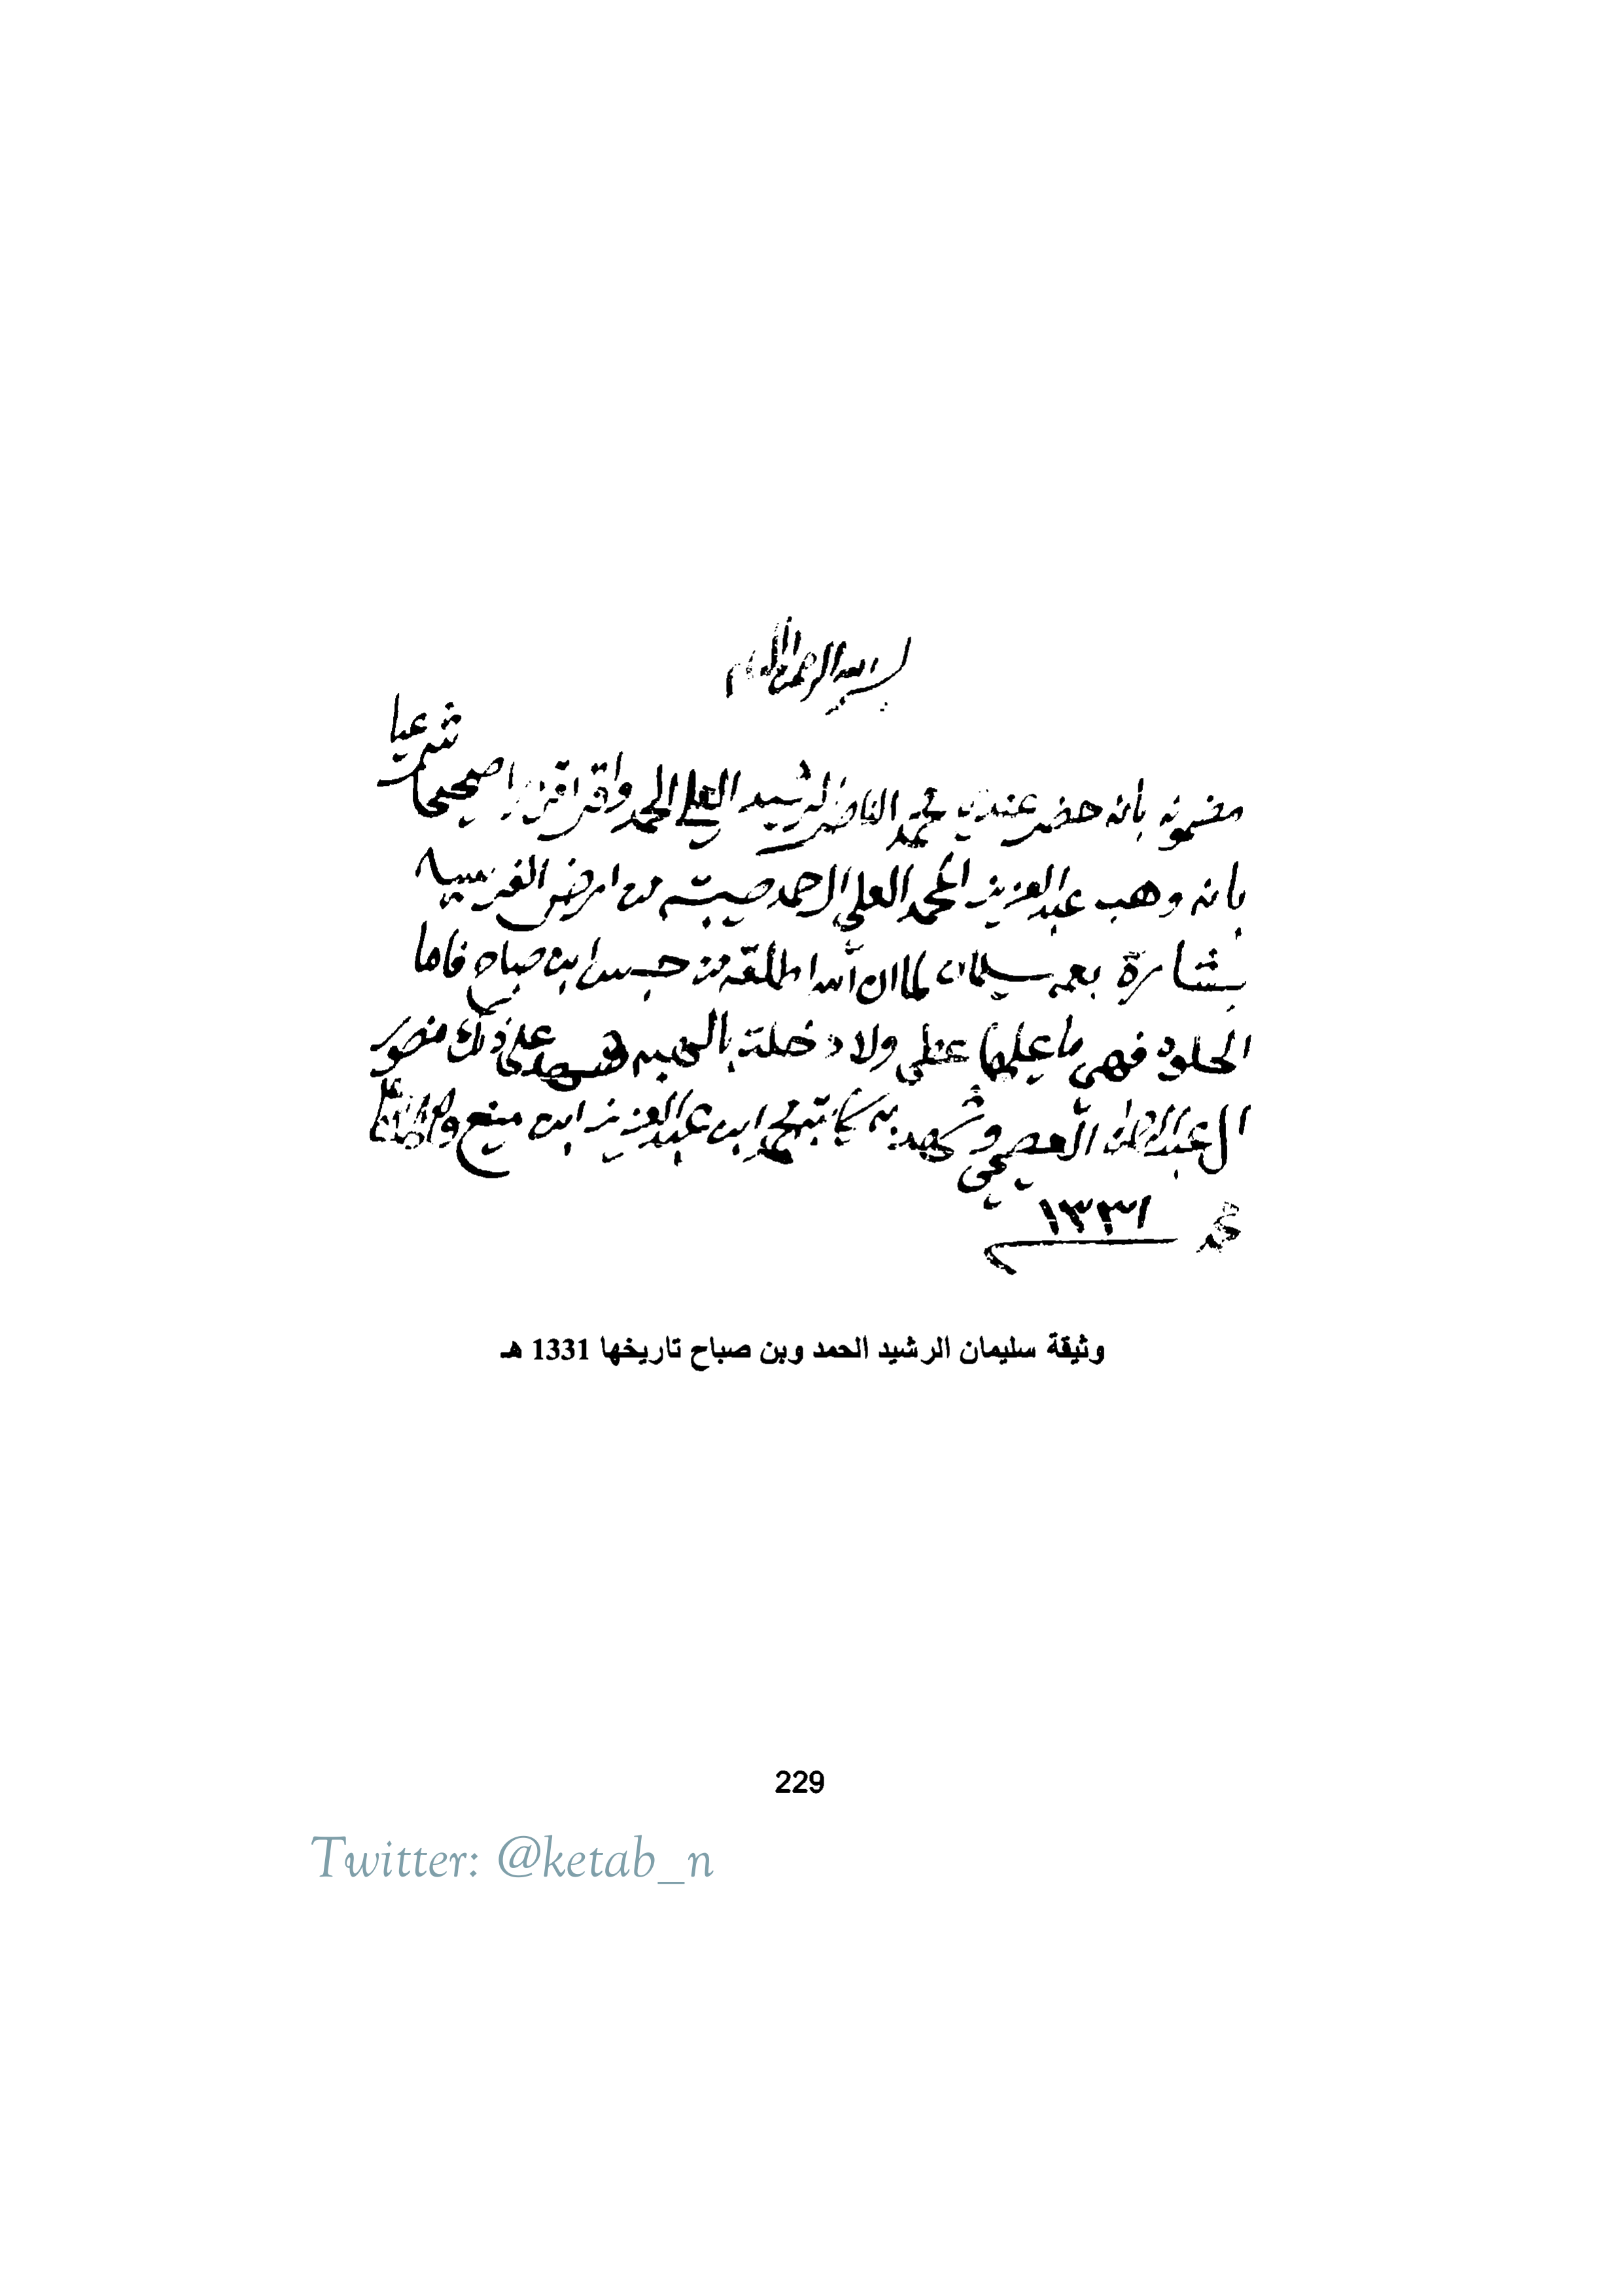 بسم الله الرحمن الرحيم
مضمونه بانه حضر عندي محمد الناصر الرشيد العلي الحمد واقر اقرارا صحيحا شرعيا
بانه وهب عبدالعزيز المحمد العلي الحمد صيبته من ارض
بشارة بعمه سليمان لما ان الله اطلقه من حبس ابن صباح فاما
الحلوه فهي ما عليها ولا دخلة شهد على ذلك منصور
ال وشهد به كاتبه محمد ابن عبدالعزيز ابن منيع
١٣٣١
وثيقة سليمان الرشيد الحمد وبن صباح تاريخها 1331 هـ
229
Twitter: @ketab_n